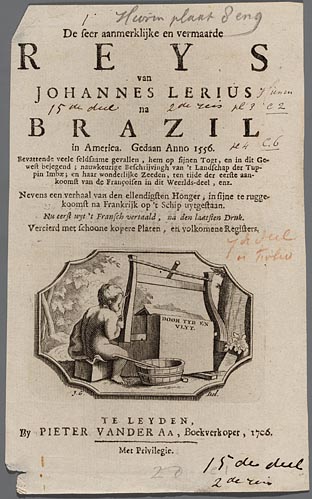 Hierin plaat 8 en 9
De seer aanmerklijke en vermaarde
REYS
van
JOHANNES LERIUS
15 de deel 2 de reis pl 3 C 2
na
BRAZIL
in America. Gedaan Anno 1556.
pl 4 C.6
Bevattende veele seldsaame gevallen, hem op sijnen Togt, en in dit Ge-
west bejegend; nauwkeurige Beschrijvingh van 't Landschap der Tup-
pin Imbæ; en haar wonderlijke Zeeden, ten tijde der eerste aan-
koomst van de Françoisen in dit Weerlds-deel, enz.
Nevens een verhaal van den ellendigsten Honger, in sijne te rugge-
koomst na Frankrijk op 't Schip uytgestaan.
Nu eerst uyt 't Fransch vertaald, na den laatsten Druk.
Vercierd met schoone kopere Platen, en volkomene Registers.
deel
in folio
DOOR TYD EN
VLYT.
J. G. Del.
TE LEYDEN,
By PIETER VANDER AA, Boekverkoper, 1706.
Met Privilegie.
15 de deel
2 de reis